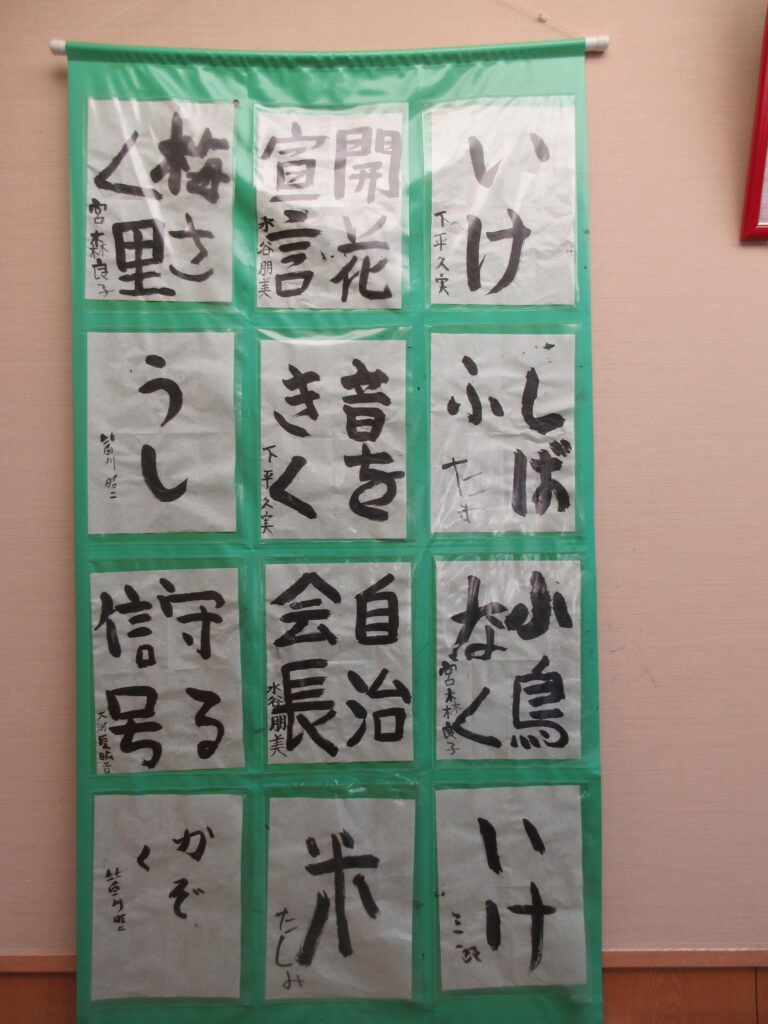 いけ
下平久実
開花
宣言
水谷朋美
梅さ
く里
宮森良子
しば
ふ
音を
きく
下平久実
うし
皆川昭二
小鳥
なく
宮森良子
自治
会長
水谷朋美
守る
信号
いけ
三郎
米
たしみ
かぞ
く
皆川昭二